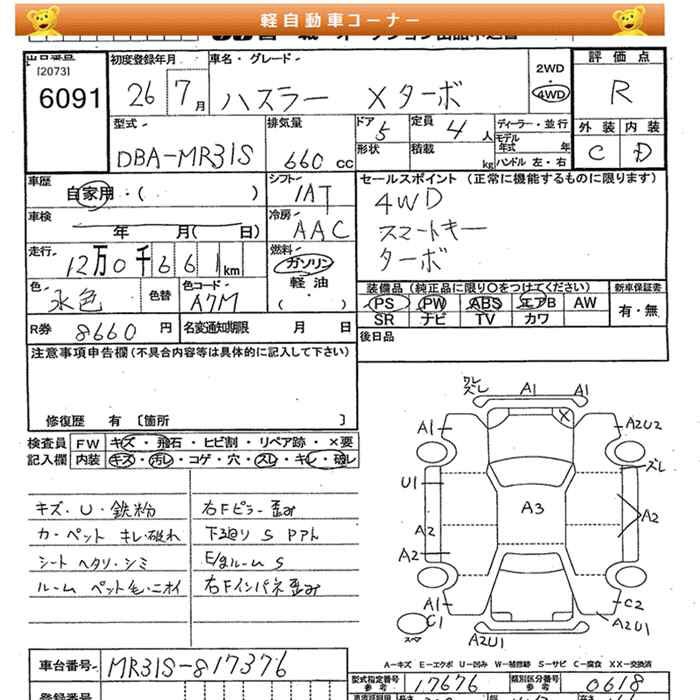 軽自動車コーナー
出品番号
[2073]
6091
初度登録年月
26 7月
車名・グレード
ハスラー Xターボ
2WD
・
4WD
評価点
R
外装 内装
C D
型式
DBA-MR31S
排気量
660 cc
ドア
5
定員
4 人
形状
積載
kg
ディーラー・並行
モデル年式 年
ハンドル 左・右
車歴
自家用・( )
シフト
IAT
セールスポイント (正常に機能するものに限ります)
4WD
スマートキー
ターボ
車検
年 月( 日)
冷房
AAC
走行
12万0千661km
燃料
ガソリン
軽油
( )
色
水色
色替
色コード
A7M
装備品 (純正品に限り○をつけてください)
PS PW ABS エアB AW
SR ナビ TV カワ
新車保証書
有・無
R券 8660 円
名変通知期限 月 日
後日品
注意事項申告欄(不具合内容等は具体的に記入して下さい)
修復歴 有 〔箇所 〕
検査員
記入欄
FW キズ・飛石・ヒビ割・リペア跡・×要
内装 キズ・汚レ・コゲ・穴・スレ・キレ・破レ
キズ・U・鉄粉
カーペット キレ・破れ
シート ヘタリ・シミ
ルーム ペット毛・ニオイ
右Fピラー歪み
下廻り S
E/gルーム S
右Fインパネ歪み
ワレ
ズレ
A1
A1
A1
A2U2
ズレ
U1
A3
A2
A2
A2
A1
C1
スペア
C2
A2U1
A2U1
A-キズ E-エクボ U-凹み W-補修跡 S-サビ C-腐食 XX-交換済
車台番号
MR31S-817376
型式指定番号
参考
17676
類別区分番号
参考
0618
登録番号